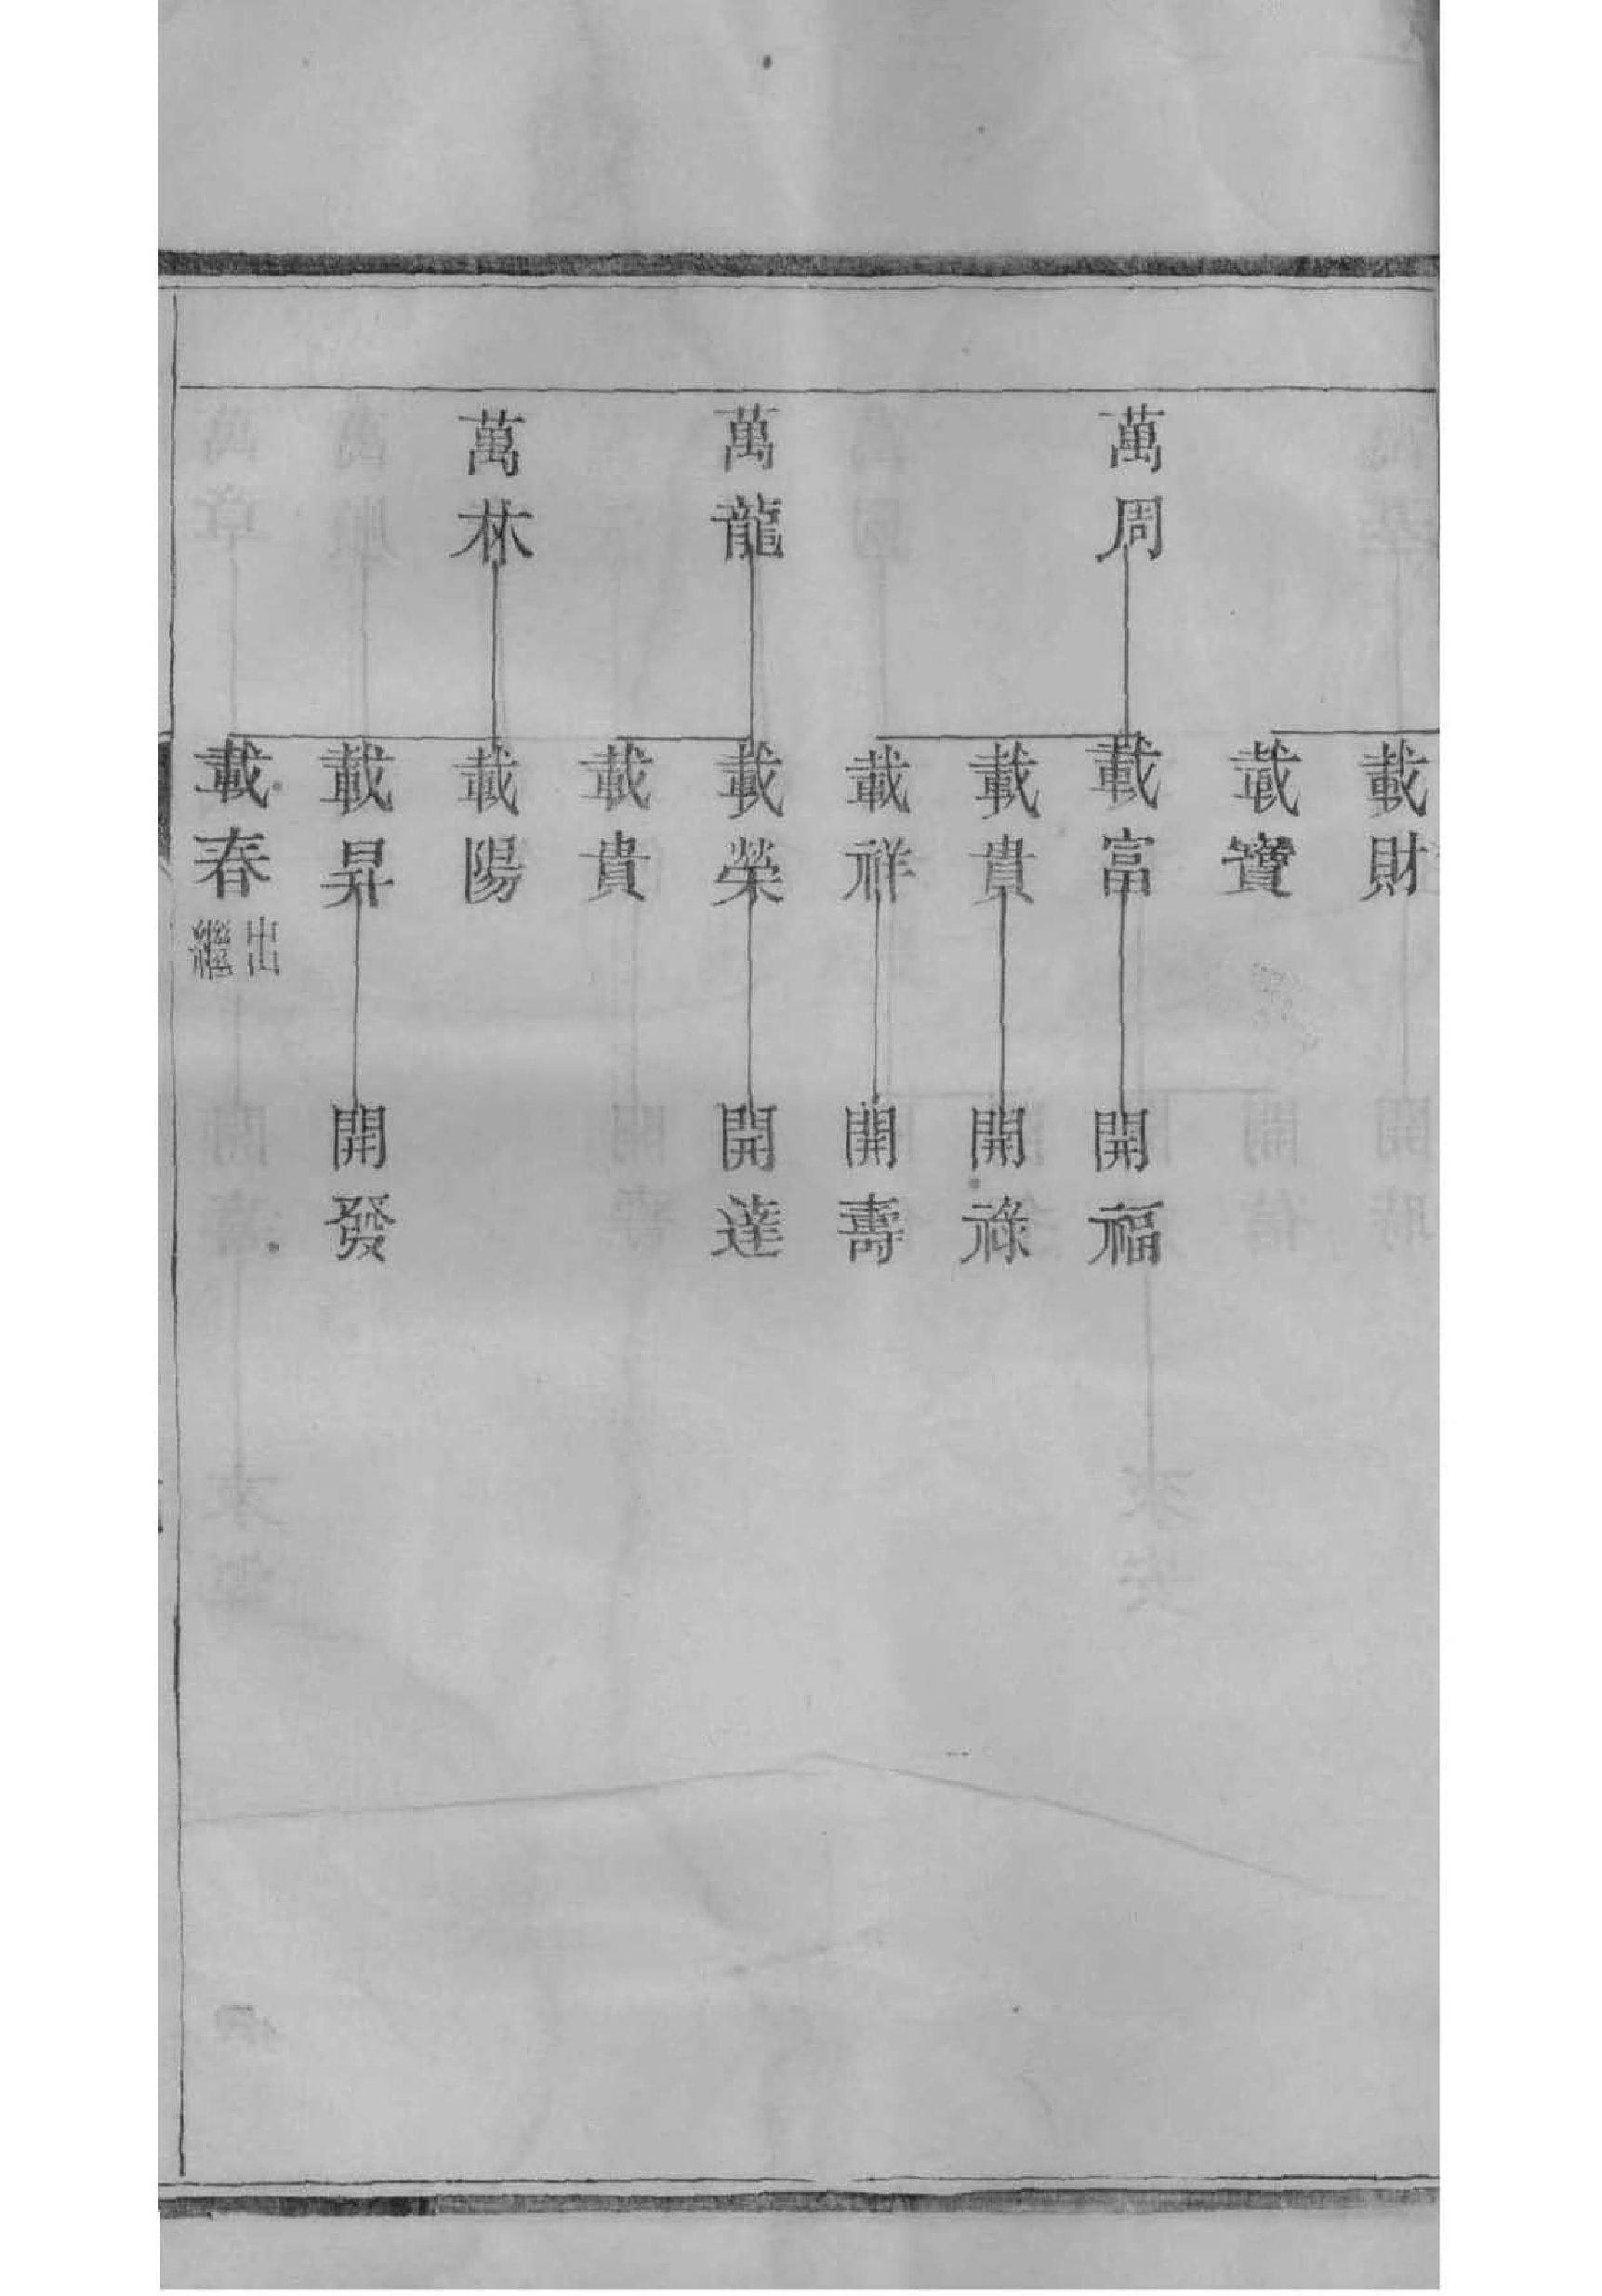 載財
載寶
萬周
載富
開福
載貴
開祿
載祥
開壽
萬龍
載榮
開達
載貴
萬林
載陽
載昇
開發
載春
出
繼